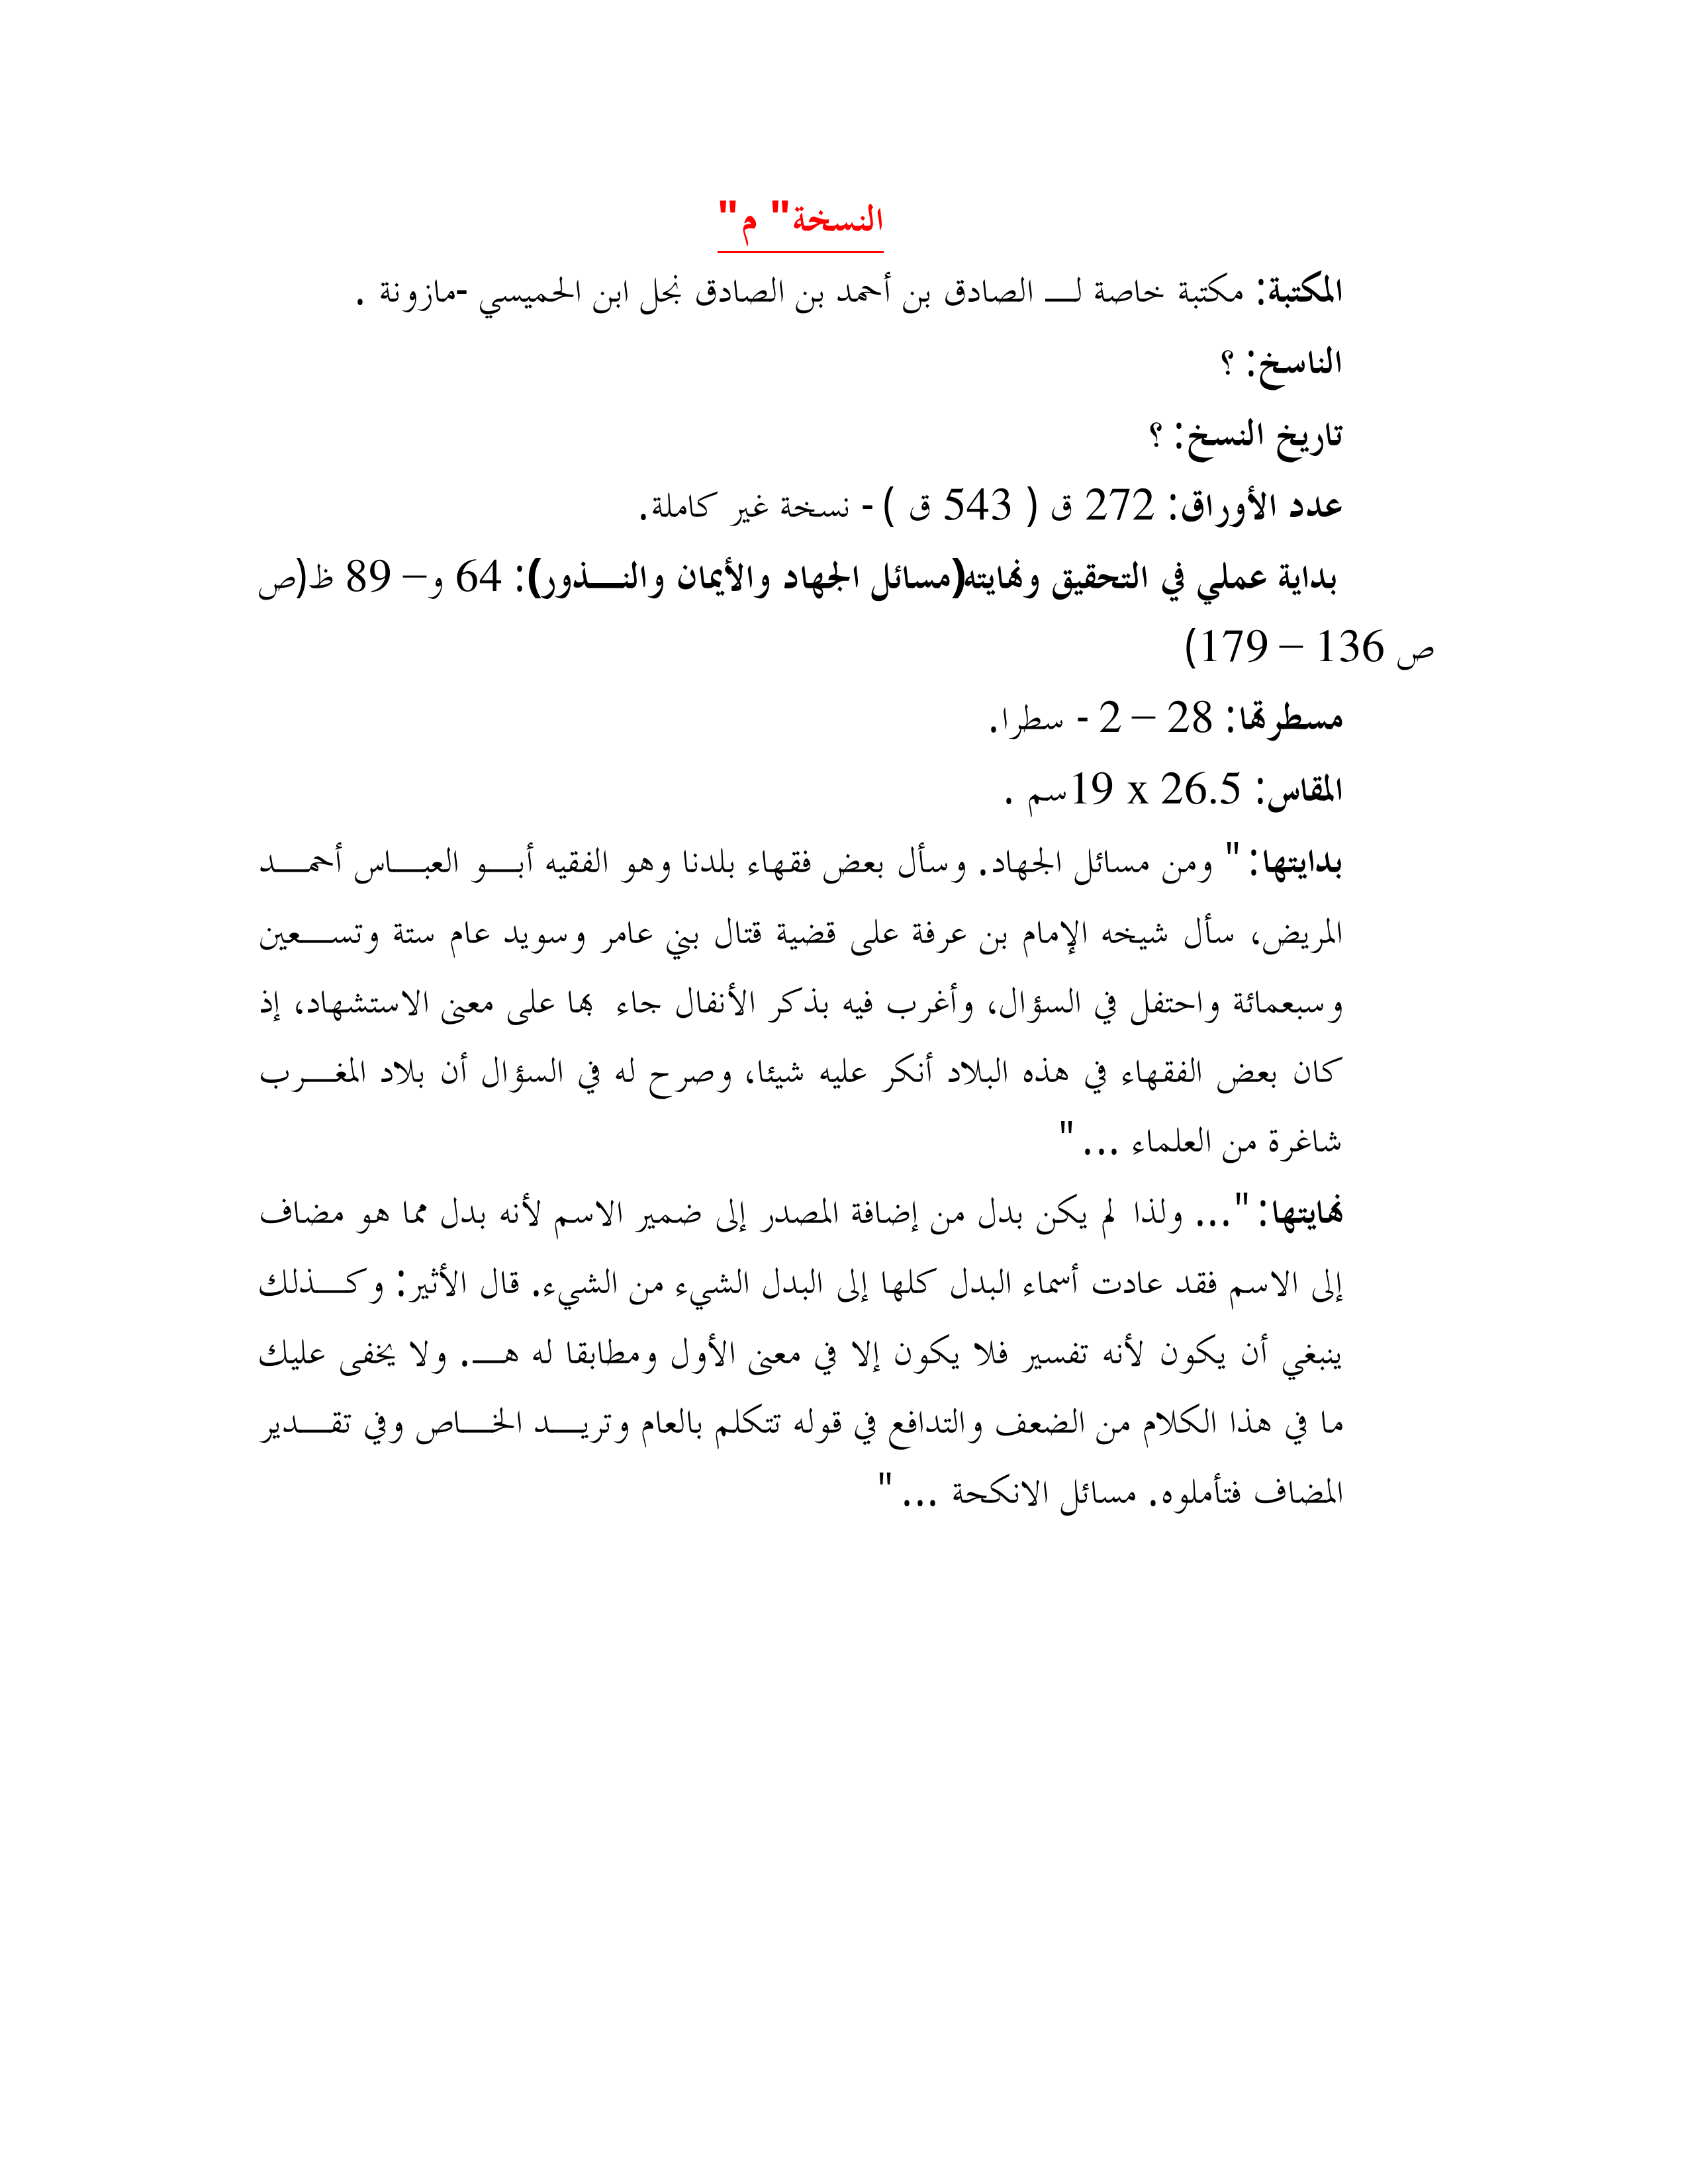 النسخة" م"
المكتبة: مكتبة خاصة لـ الصادق بن أحمد بن الصادق نجل ابن الحميسي -مازونة .
الناسخ: ؟
تاريخ النسخ: ؟
عدد الأوراق: 272 ق ( 543 ق ) - نسخة غير كاملة.
بداية عملي في التحقيق ونهايته(مسائل الجهاد والأيمان والنذور): 64 و– 89 ظ(ص
ص 136 – 179)
مسطرتها: 28 – 2 - سطرا.
المقاس: 26.5 x 19سم .
بدايتها: " ومن مسائل الجهاد. وسأل بعض فقهاء بلدنا وهو الفقيه أبو العباس أحمد
المريض، سأل شيخه الإمام بن عرفة على قضية قتال بني عامر وسويد عام ستة وتسعين
وسبعمائة واحتفل في السؤال، وأغرب فيه بذكر الأنفال جاء بها على معنى الاستشهاد، إذ
كان بعض الفقهاء في هذه البلاد أنكر عليه شيئا، وصرح له في السؤال أن بلاد المغرب
شاغرة من العلماء ... "
نهايتها: "... ولذا لم يكن بدل من إضافة المصدر إلى ضمير الاسم لأنه بدل مما هو مضاف
إلى الاسم فقد عادت أسماء البدل كلها إلى البدل الشيء من الشيء. قال الأثير: وكذلك
ينبغي أن يكون لأنه تفسير فلا يكون إلا في معنى الأول ومطابقا له هـ. ولا يخفى عليك
ما في هذا الكلام من الضعف والتدافع في قوله تتكلم بالعام وتريد الخاص وفي تقدير
المضاف فتأملوه. مسائل الانكحة ... "